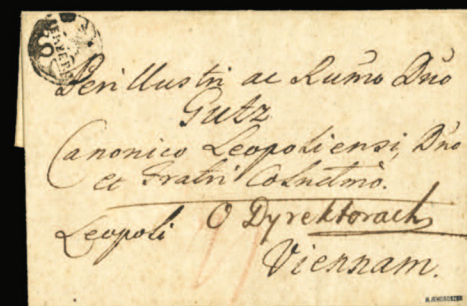 Perillustri ac Rmo Dno
Gutz
Canonico Leopoliensi, Dno
et Fratri Colndmo.
Leopoli O Dyrektorach
Viennam.